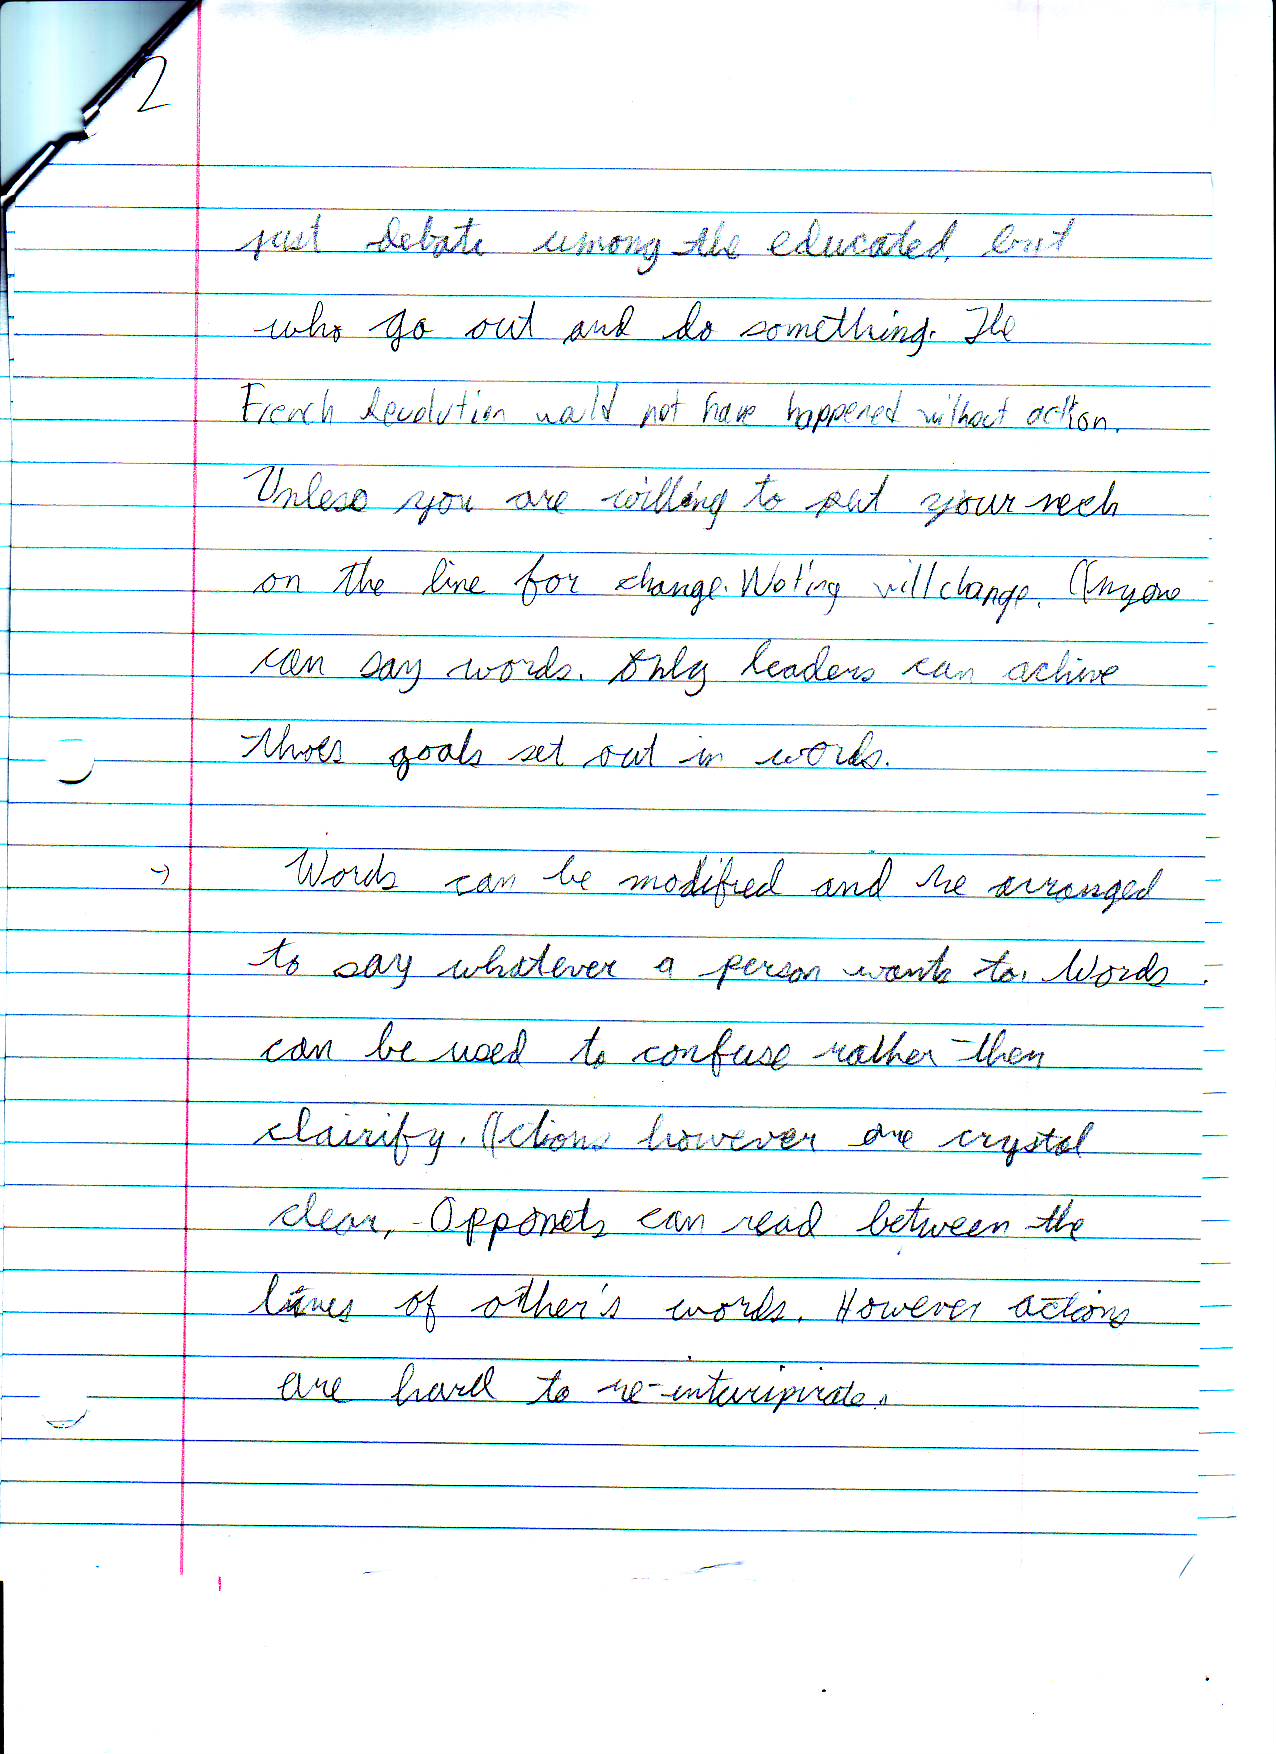 2
just debate among the educated, but
who go out and do something. The
French Revolution would not have happened without action.
Unless you are willing to put your neck
on the line for change. Noting will change. Anyone
can say words. Only leaders can achive
thoes goals set out in words.
→ Words can be modified and re arranged
to say whatever a person wants to. Words
can be used to confuse rather then
clairify. Actions however are crystal
clear, Opponets can read between the
lines of other's words. However actions
are hard to re-interipirate.